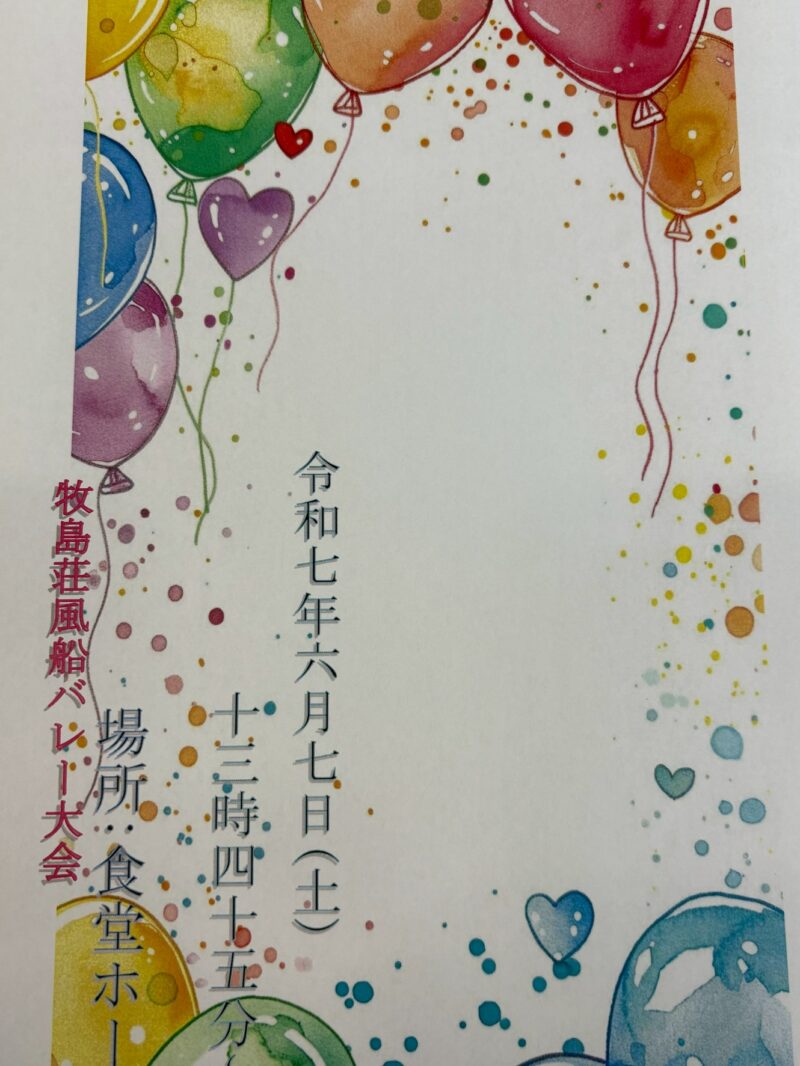 令和七年六月七日(土)
十三時四十五分～
場所:食堂ホー
牧島荘風船バレー大会